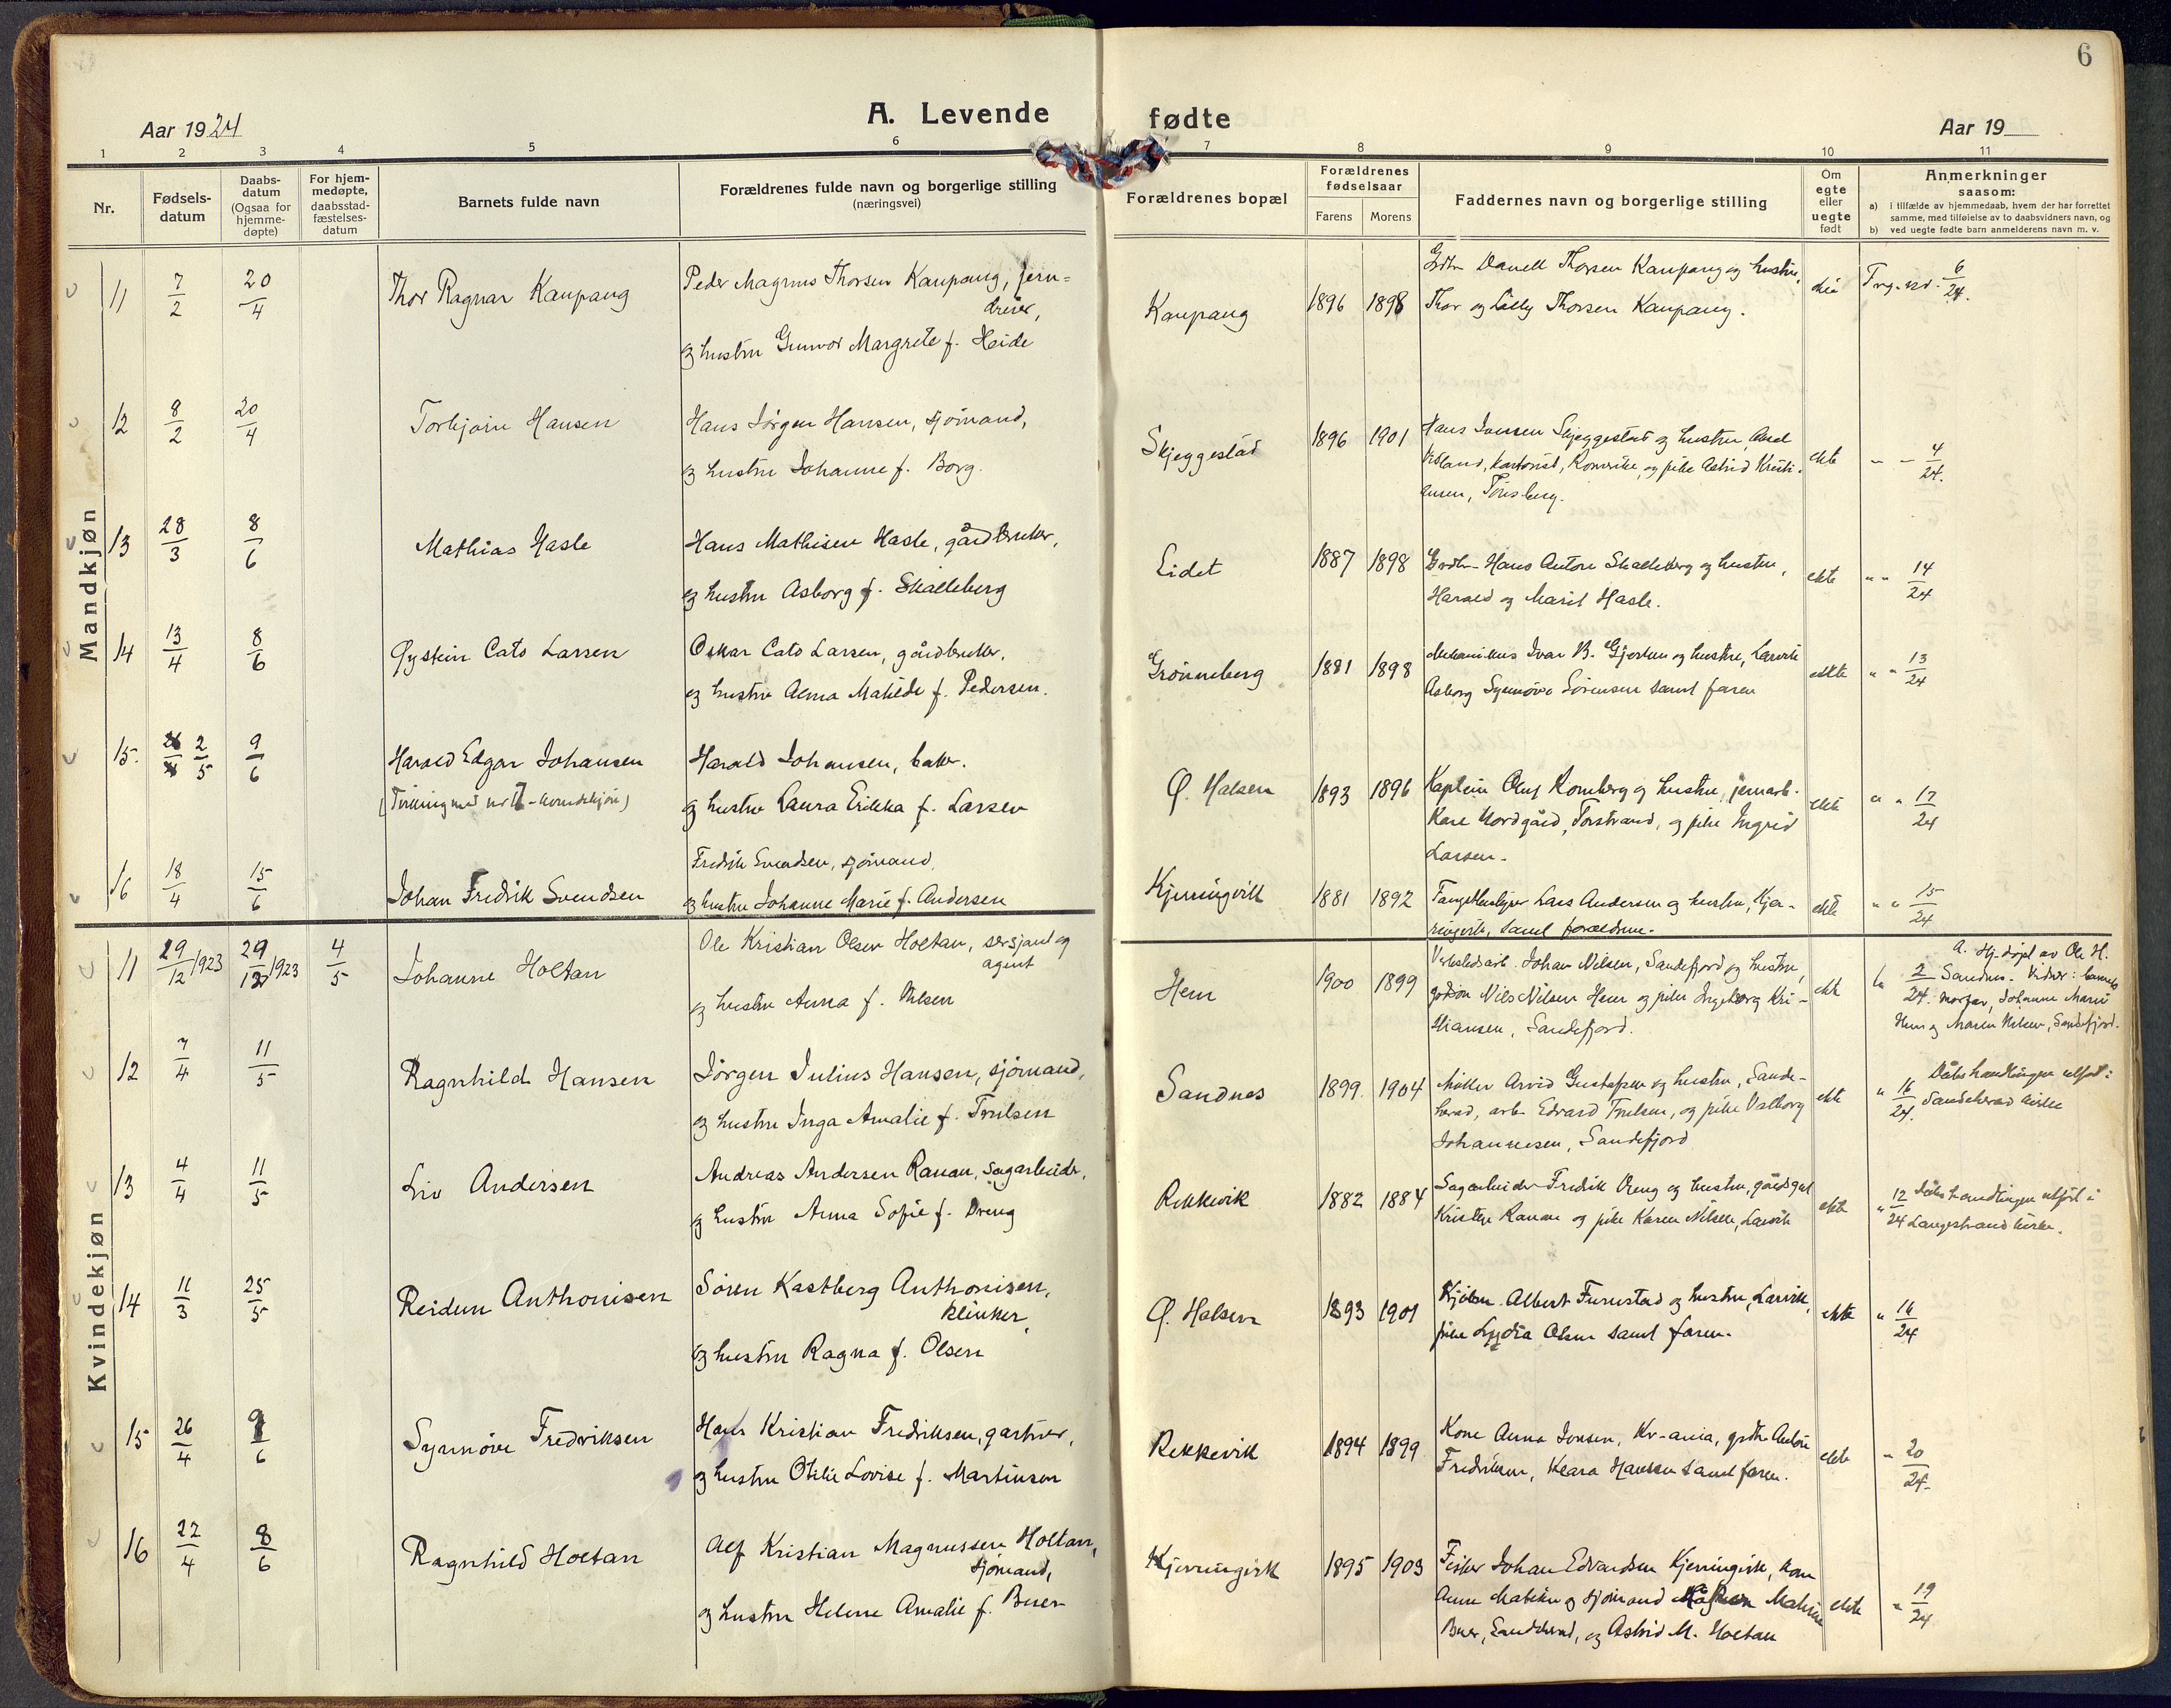 6
A. Levende fødte
Aar 1924
Aar 19
1 2 3 4 5 6 7 8 9 10 11
Nr.
Fødsels-
datum
Daabs-
datum
(Ogsaa for
hjemme-
døpte)
For hjem-
medøpte,
daabsstad-
fæstelses-
datum
Barnets fulde navn
Forældrenes fulde navn og borgerlige stilling
(næringsvei)
Forældrenes bopæl
Forældrenes
fødselsaar
Farens Morens
Faddernes navn og borgerlige stilling
Om
egte
eller
uegte
født
Anmerkninger
saasom:
a) i tilfælde av hjemmedaab, hvem der har forrettet
samme, med tilføielse av to daabsvidners navn, og
b) ved uegte fødte barn anmelderens navn m. v.
Mandkjøn
11 7/2 20/4 Thor Ragnar Kaupang Peder Magnus Thorsen Kaupang, jern-
dreier,
og hustru Gunvor Margrete f. Heide
Kaupang 1896 1898 Gdbr. Danell Thorsen Kaupang og hustru,
Thor og Lilly Thorsen Kaupang. 6/24.
12 8/2 20/4 Torbjørn Hansen Hans Jørgen Hansen, sjømand,
og hustru Johanne f. Borg.
Skjeggestad 1896 1901 Hans Iversen Skjeggestad og hustru, Axel
og pike Astrid Kristi-
ansen, Tønsberg. ekte 4/24.
13 28/3 8/6 Mathias Hasle Hans Mathisen Hasle, gårdbruker,
og hustru Asborg f. Skalleberg
Eidet 1887 1898 Grdbr. Hans Anton Skalleberg og hustru,
Harald og Marit Hasle. ekte " " 14/24
14 13/4 8/6 Øystein Cato Larsen Oskar Cato Larsen, gårdbruker,
og hustru Alma Matilde f. Pedersen.
Grønneberg 1881 1898 Mekanikus Ivar B. Gjertsen og hustru, Larvik
Asborg Synnøve Sørensen samt faren ekte " " 13/24
15. 2/5 9/6 Harald Edgar Johansen Harald Johansen, baker.
(Tvilling med nr 17 - kvindekjøn) og hustru Laura Erikka f. Larsen
Ø. Halsen 1893 1896 Kaptein Oluf Romberg og hustru, jernarb.
Kare Nordgård, Torstrand, og pike Ingrid
Larsen. ekte " " 17/24
16 18/4 15/6 Johan Fredrik Svendsen Fredrik Svendsen, sjømand.
og hustru Johanne Marie f. Andersen
Kjerringvik 1881 1892 Lars Andersen og hustru, Kjer-
ringvik, samt forældrene. ekte " " 15/24
Kvindekjøn
11 29/12 1923 29/12 1923 4/5 Johanne Holtan Ole Kristian Olsen Holtan, sersjant og
agent
og hustru Anna f. Nilsen
Hem 1900 1899 Verkstedsarb. Johan Nilsen, Sandefjord og hustru,
Nils Nilsen Hem og pike Ingeborg Kri-
stiansen, Sandefjord. ekte 2/24.
A. Hj.døpt av Ole H.
Sandnes. Vidner: barnets
morfar, Johanne Marie
Hem og Maren Nilsen, Sandefjord.
12 7/4 11/5 Ragnhild Hansen Jørgen Julius Hansen, sjømand,
og hustru Inga Amalie f. Trulsen
Sandnes 1899. 1904 Møller Arvid Gustafsen og hustru, Sande-
herad, arb. Edvard Trulsen, og pike Valborg
Johannesen, Sandefjord ekte " 16/24. Dåbshandlingen utført i
Sandeherad kirke
13 4/4 11/5 Liv Andersen Andreas Andersen Ranan, sagarbeider,
og hustru Anna Sofie f. Oreng
Rekkevik 1882 1884 Sagarbeider Fredrik Oreng og hustru, gårdsgut
Kristen Ranan og pike Karen Nilsen, Larvik ekte " 12/24 Dåbshandlingen utført i
Langestrand kirke.
14 11/3 25/5 Reidun Anthonisen Søren Kastberg Anthonisen,
klinker,
og hustru Ragna f. Olsen
Ø. Halsen 1893 1901 Albert Furustad og hustru, Larvik,
pike Lydia Olsen samt faren. ekte " 16/24
15 26/4 9/6 Synnøve Fredriksen Hans Kristian Fredriksen, gartner,
og hustru Otilie Lovise f. Martinsen
Rekkevik 1894 1899 Kone Anna Jensen, Kr-ania, Anton
Fredriksen, Klara Hansen samt faren. ekte " 20/24.
16 22/4 8/6 Ragnhild Holtan Alf Kristian Magnussen Holtan,
sjømand,
og hustru Helene Amalie f. Buer
Kjerringvik 1895 1903 Fisker Johan Edvardsen Kjerringvik, kone
Anne og sjømand
Buer, Sandeherad, og Astrid M. Holtan ekte " 19/24.